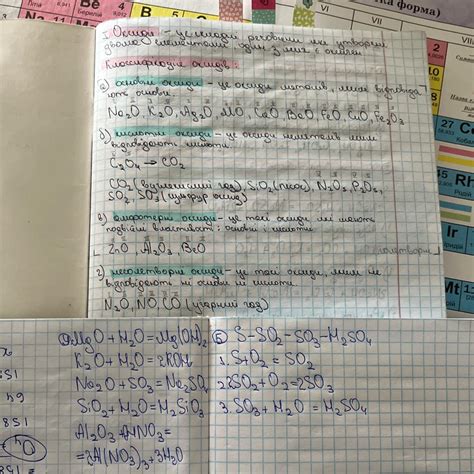 Be
4 9,01
Берилій
B
C
N
Na
Mg
форма)
VI
VII
VIII
27
Co
Rh
Ir
Mt
I. Оксиди - це складні речовини які утворені
двома елементами один з яких є оксиген
Класифікація оксидів:
а) основні оксиди - це оксиди металів, яким відповіда
ють основи.
Na₂O, K₂O, Ag₂O, MgO, CaO, BaO, FeO, CuO, Fe₂O₃
б) кислотні оксиди - це оксиди неметалів яким
відповідають кислоти.
CO₂ (вуглекислий газ), SiO₂ (пісок), N₂O₅, P₂O₅,
SO₂, SO₃
в) амфотерні оксиди - це такі оксиди які мають
подвійні властивості: основні і кислотні
ZnO, Al₂O₃, BeO
г) несолетворні оксиди - це такі оксиди, яким не
відповідають ні основи ні кислоти.
N₂O, NO, CO (чадний газ)
MgO + H₂O = Mg(OH)₂
K₂O + H₂O = 2KOH
Na₂O + SO₃ = Na₂SO₄
SiO₂ + H₂O = H₂SiO₃
Al₂O₃ + HNO₃ =
= 2Al(NO₃)₃ + 3H₂O
Б S-SO₂-SO₃-H₂SO₄
1. S+O₂ = SO₂
2. 2SO₂+O₂=2SO₃
3. SO₃+H₂O = H₂SO₄